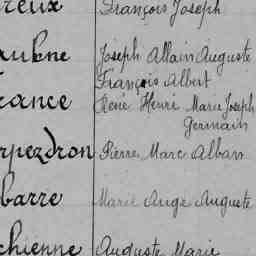 reux François Joseph
aubne Joseph Allain Auguste
François Albert
rance René Henri Marie Joseph
Germain
rpezdron Pierre Marc Alban
barre Marie Ange Auguste
chienne Auguste Marie